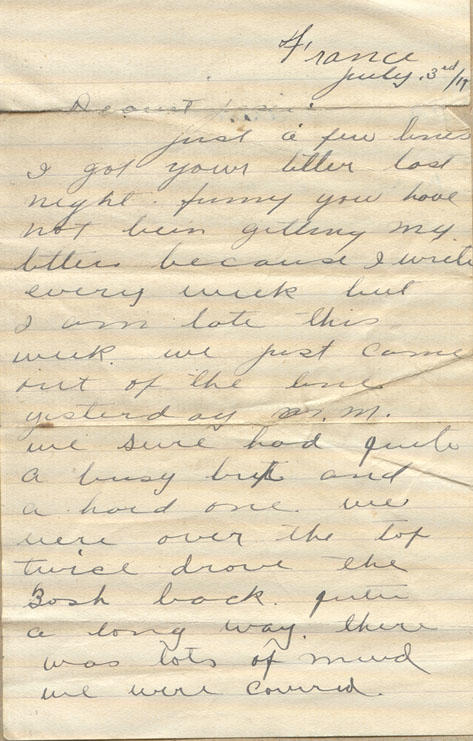 France
July. 3rd/17
Dearest
just a few lines
I got your letter last
night. funny you have
not been getting my
letters because I write
every week but
I am late this
week. we just came
out of the line
yesterday A.M.
we sure had quite
a busy but and
a hard one. we
were over the top
twice drove the
Bosh back. quite
a long way. there
was lots of mud
we were covered.